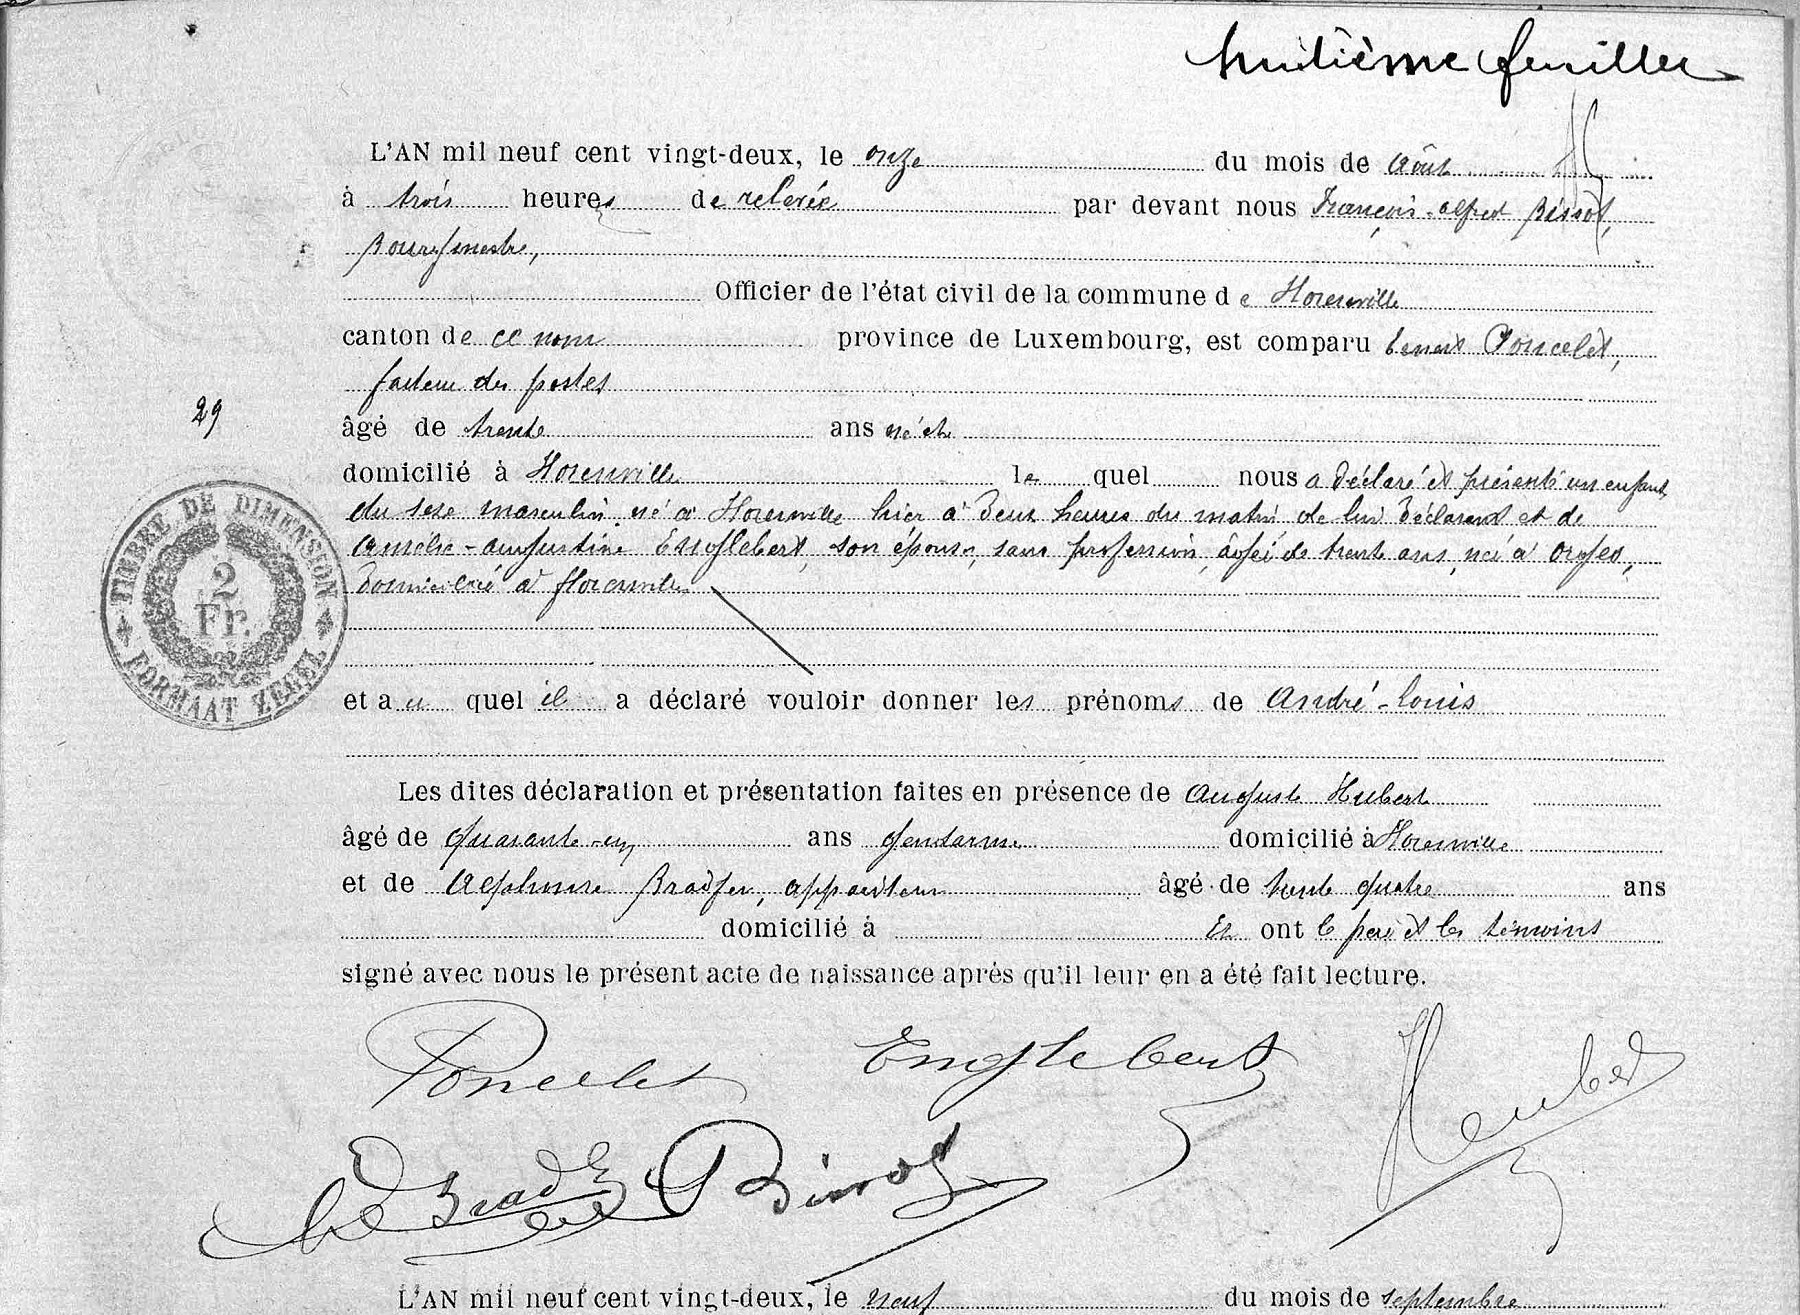 huitième feuillet
L'AN mil neuf cent vingt-deux, le onze du mois de Août
à trois heures de relevée par devant nous François-Alfred Bissot,
Bourgmestre,
Officier de l'état civil de la commune de Florenville
canton de ce nom province de Luxembourg, est comparu Ernest Poncelet,
facteur des postes
29
âgé de trente ans né et
domicilié à Florenville lequel nous a déclaré et présenté un enfant
du sexe masculin, né à Florenville hier à deux heures du matin de lui déclarant et de
Amélie-Augustine Englebert, son épouse, sans profession, âgée de trente ans, née à Orgeo,
domiciliée à Florenville
TIMBRE DE DIMENSION
2
Fr.
FORMAAT ZEGEL
et au quel il a déclaré vouloir donner les prénoms de André-Louis
Les dites déclaration et présentation faites en présence de Auguste Hubert
âgé de quarante-un ans gendarme domicilié à Florenville
et de Alphonse Bradfer, appariteur âgé de trente quatre ans
domicilié à Et ont le père et les témoins
signé avec nous le présent acte de naissance après qu'il leur en a été fait lecture.
Poncelet Englebert Hubert
Bradfer Bissot
L'AN mil neuf cent vingt-deux, le neuf du mois de septembre